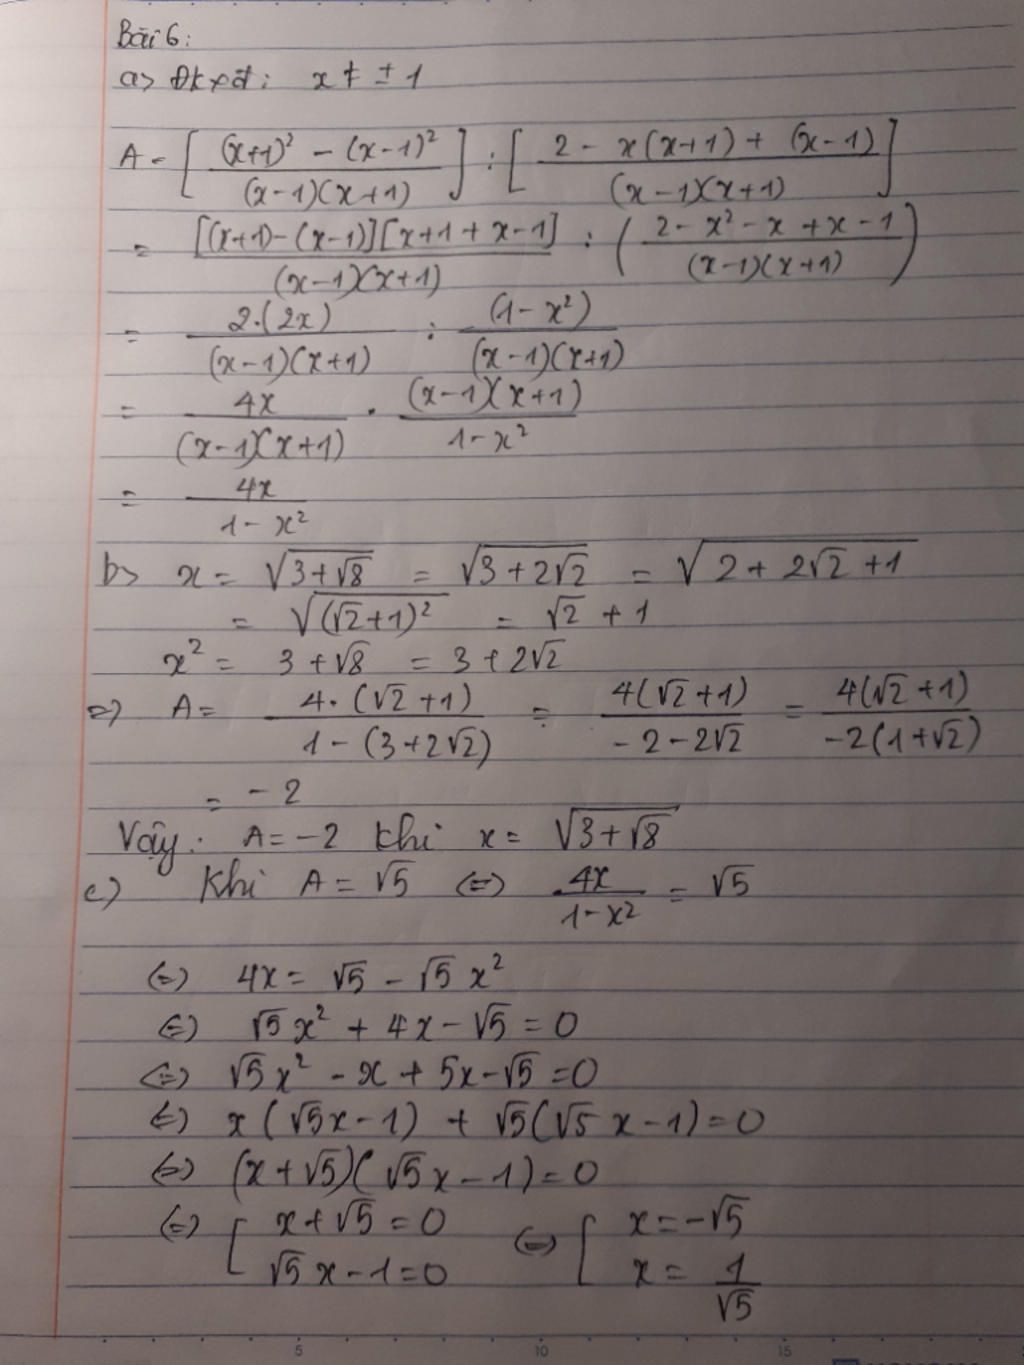 Bài 6:
a> Đkxđ: x ≠ ± 1
A = [ ((x+1)² - (x-1)²) / ((x-1)(x+1)) ] : [ (2 - x(x+1) + (x-1)) / ((x-1)(x+1)) ]
= [(x+1)-(x-1)][x+1+x-1] / ((x-1)(x+1)) : ( (2-x²-x+x-1) / ((x-1)(x+1)) )
= 2.(2x) / ((x-1)(x+1)) : (1-x²) / ((x-1)(x+1))
= 4x / ((x-1)(x+1)) . (x-1)(x+1) / (1-x²)
= 4x / (1-x²)
b> x = √(3+√8) = √(3+2√2) = √(2+2√2+1)
= √((√2+1)²) = √2 + 1
x² = 3+√8 = 3+2√2
=> A = 4.(√2+1) / (1-(3+2√2)) = 4(√2+1) / (-2-2√2) = 4(√2+1) / (-2(1+√2))
= -2
Vậy: A = -2 khi x = √(3+√8)
c) Khi A = √5 (=) 4x / (1-x²) = √5
(=) 4x = √5 - √5 x²
(=) √5 x² + 4x - √5 = 0
(=) √5 x² - x + 5x - √5 = 0
(=) x(√5x-1) + √5(√5 x-1) = 0
(=) (x+√5)(√5x-1) = 0
(=) [ x+√5 = 0 (=) [ x = -√5
√5 x-1 = 0 x = 1/√5
5 10 15